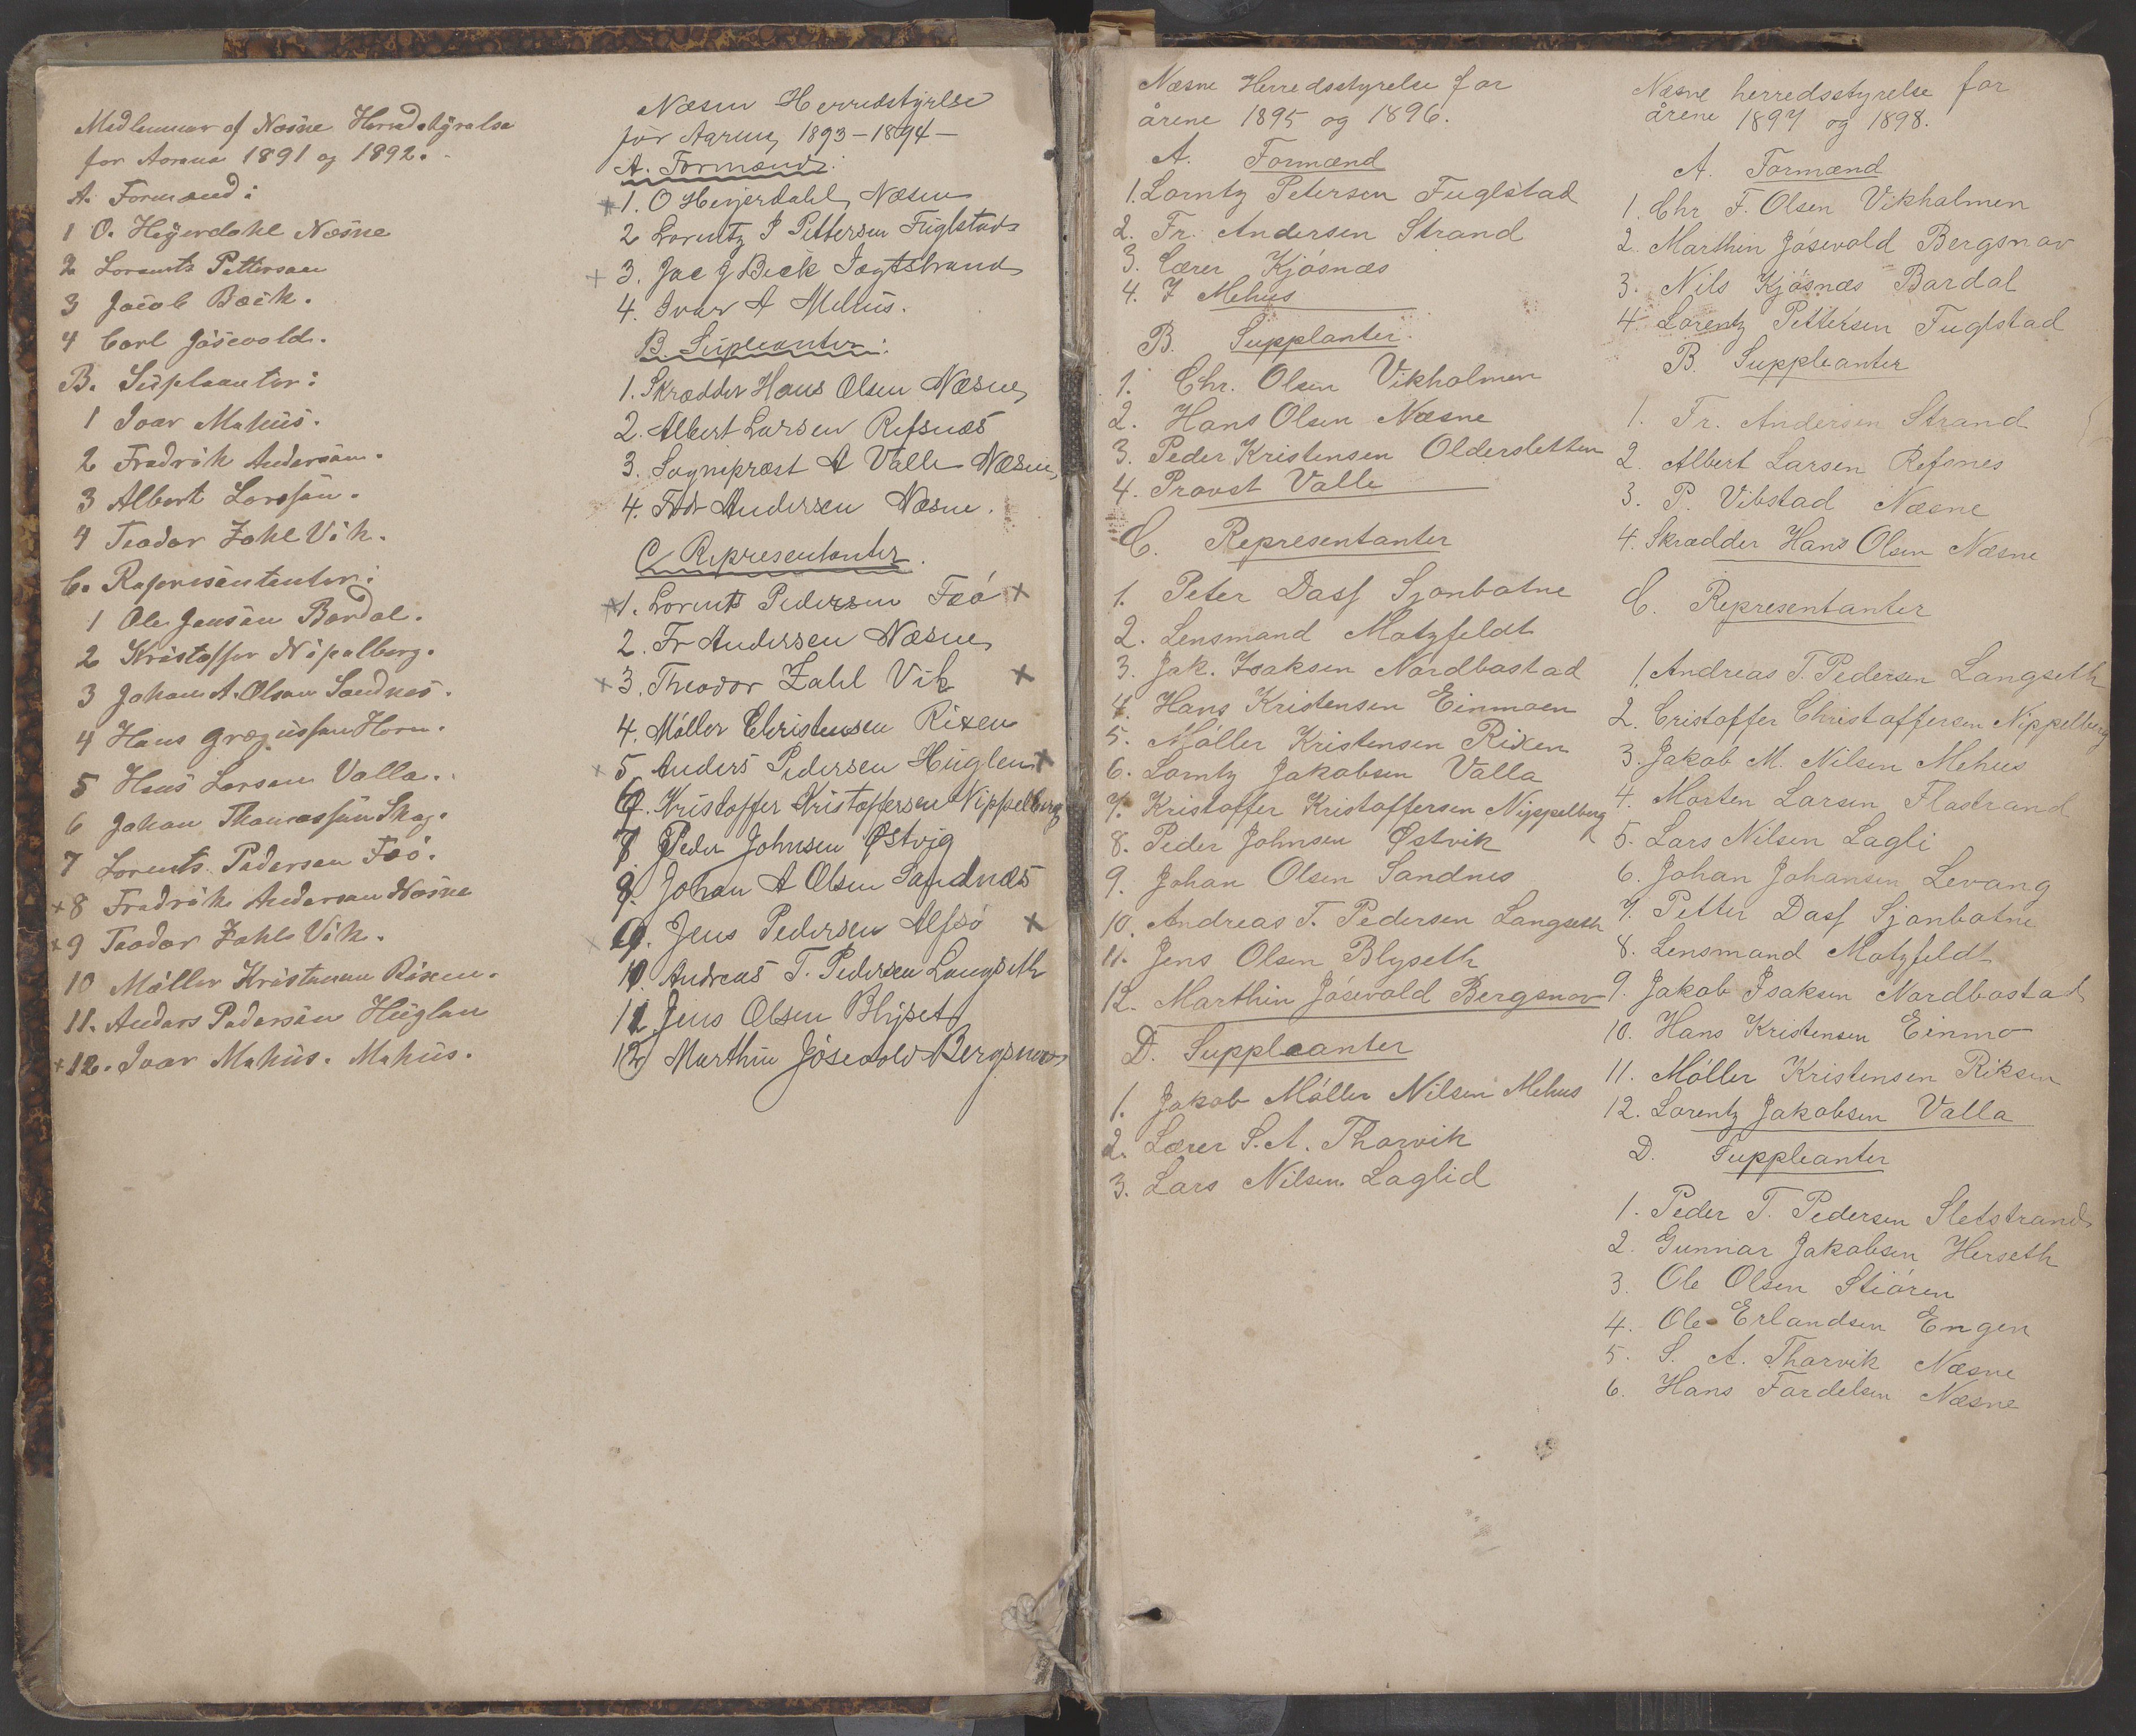 Medlemmer af Næsne Herredstyrelse
for Aarene 1891 og 1892.
A. Formænd:
1 O. Heÿerdahl Næsne
2 Lorents Pettersen
3 Jacob Beck.
4 Carl Jösevold.
B. Supleanter:
1 Ivar Mehus.
2 Fredrik Andersen.
3 Albert Larssen.
4 Teodor Zahl Vik.
C. Represententer:
1 Ole Jensen Bardal.
2 Kristoffer Nipalberg.
3 Johan A. Olsen Sandnes.
4 Hans Græģussen Horn.
5 Hans Larsen Valla.
6 Johan Thomassen Skog.
7 Lorents Pedersen Feö.
+8 Fredrik Andersen Næsne
+9 Teodor Zahl Vik.
10 Möller Kristensen Rixen.
11. Anders Pedersen Hüglen
+12. Ivar Mehus. Mehus.
Næsne Herredstyrelse
for Aarene 1893-1894-
A. Formænd:
+1. O Heyerdahl, Næsne
2 Lorentz P Pettersen Fuglstad
+3. Jac J Beck Jægtstrand
4. Ivar A Mehus.
B. Supleanter:
1. Skrædder Hans Olsen Næsne
2. Albert Larsen Refsnæs
3. Sognepræst A Valle Næsne
4. Fdr Andersen Næsne.
C. Representanter.
+1. Lorents Pedersen Feö +
2. Fr Andersen Næsne
+3. Theodor Zahl Vik +
4. Möller Christensen Rixen
+5 Anders Pedersen Hüglen +
6. Kristoffer Kristoffersen Nippelberg
7 Peder Johnsen Østvig
8. Johan A Olsen Sandnæs
+9. Jens Pedersen Alfsö +
10. Andreas T. Pedersen Langseth
11 Jens Olsen Blyset
12 Marthin Jösevold Bergsnov
Næsne Herredsstyrelse for
årene 1895 og 1896.
A. Formænd
1. Lorntz Petersen Fuglstad
2. Fr. Andersen Strand
3. Lærer Kjósnæs
4. I Mehus
B. Supplanter.
1. Chr. Olsen Vikholmen
2. Hans Olsen Næsne
3. Peder Kristensen Oldersletten
4. Provst Valle
C. Representanter
1. Peter Dass Sjonbotne
2. Lensmand Motzfeldt
3. Jak. Isaksen Nordbostad
4. Hans Kristensen Einmoen
5. Möller Kristensen Rixen
6. Lorntz Jakobsen Valla
7. Kristoffer Kristoffersen Nippelberg
8. Peder Johnsen Østvik
9. Johan Olsen Sandnes
10. Andreas T. Pedersen Langseth
11. Jens Olsen Blyseth
12. Marthin Jósevold Bergsnov
D. Suppleanter
1. Jakob Móller Nilsen Mehus
2. Lærer S. A. Thorvik
3. Lars Nilsen Laglid
Næsne herredsstyrelse for
årene 1897 og 1898.
A. Formænd
1. Chr F. Olsen Vikholmen
2. Marthin Jósevold Bergsnov
3. Nils Kjósnæs Bardal
4. Lorentz Pettersen Fuglstad
B. Suppleanter
1. Fr. Andersen Strand
2. Albert Larsen Refsnes
3. P. Vibstad Næsne
4. Skrædder Hans Olsen Næsne
C. Representanter
1. Andreas T. Pedersen Langseth
2. Cristoffer Christoffersen Nippelberg
3. Jakob M. Nilsen Mehus
4. Morten Larsen Flostrand
5. Lars Nilsen Lagli
6. Johan Johansen Levang
7. Petter Dass Sjonbotne
8. Lensmand Motzfeldt
9. Jakob Isaksen Nordbostad
10. Hans Kristensen Einmo
11. Móller Kristensen Riksen
12. Lorentz Jakobsen Valla
D. Suppleanter
1. Peder T. Pedersen Sletstrand
2. Gunnar Jakobsen Herseth
3. Ole Olsen Stióren
4. Ole Erlandsen Engen
5. S. A. Thorvik Næsne
6. Hans Fardelsen Næsne